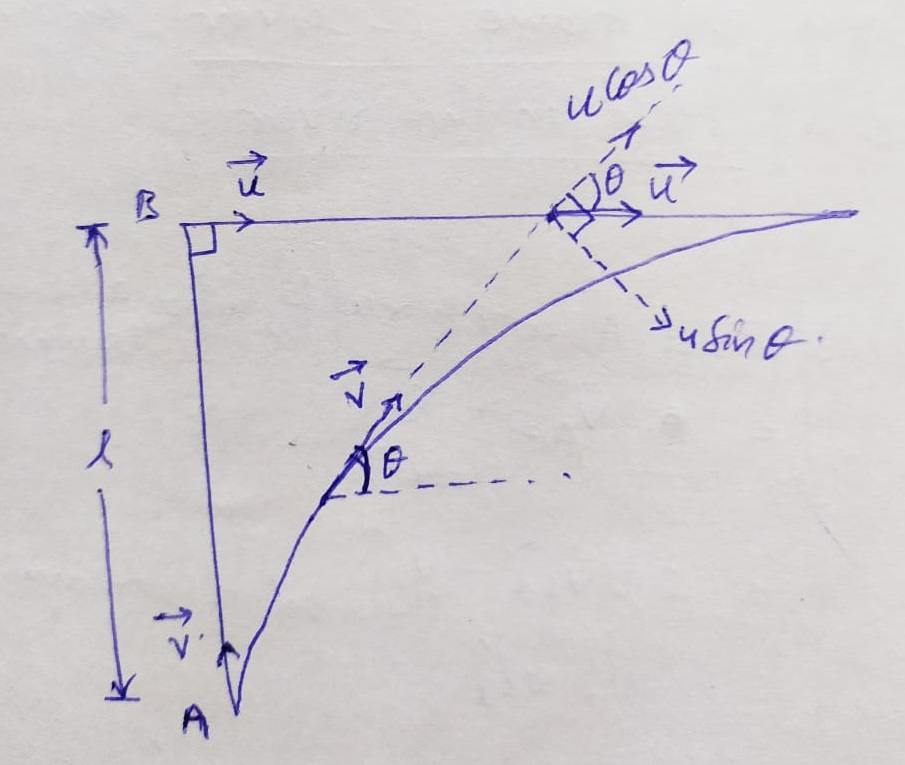 u cos θ
B
u⃗
θ
u⃗
u sin θ.
v⃗
l
θ
v⃗
A